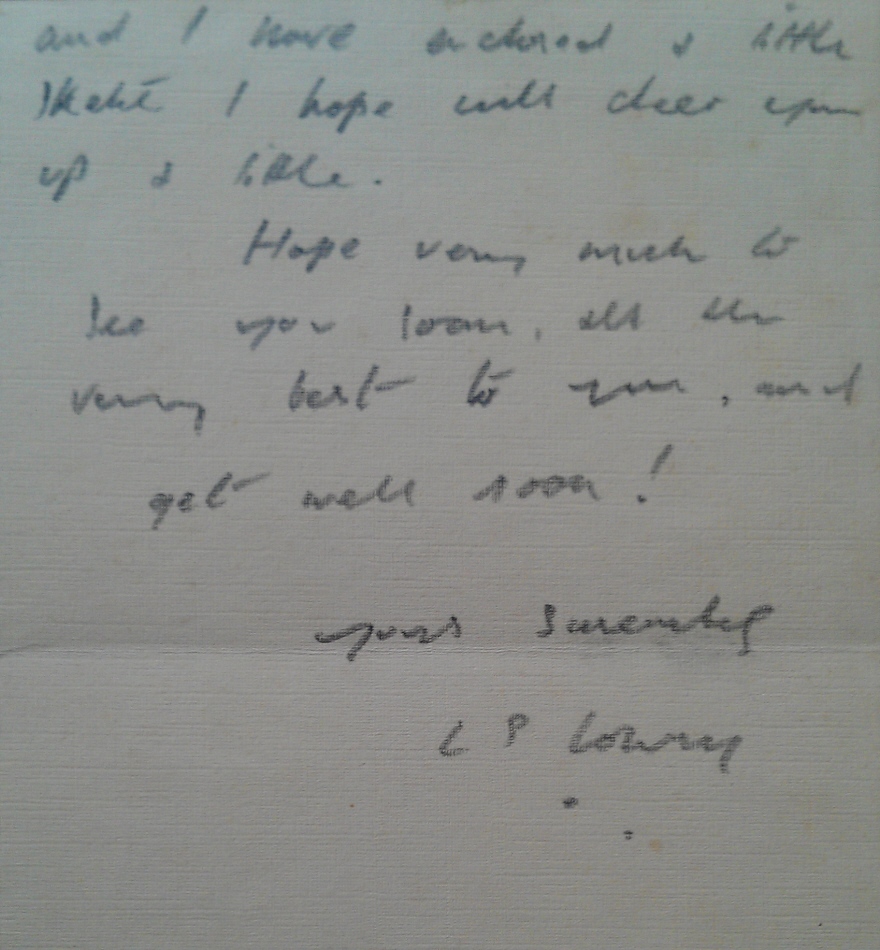 and I have enclosed a little
sketch I hope will cheer you
up a little.
Hope very much to
see you soon, all the
very best to you, and
get well soon!
yours sincerely
L S Lowry